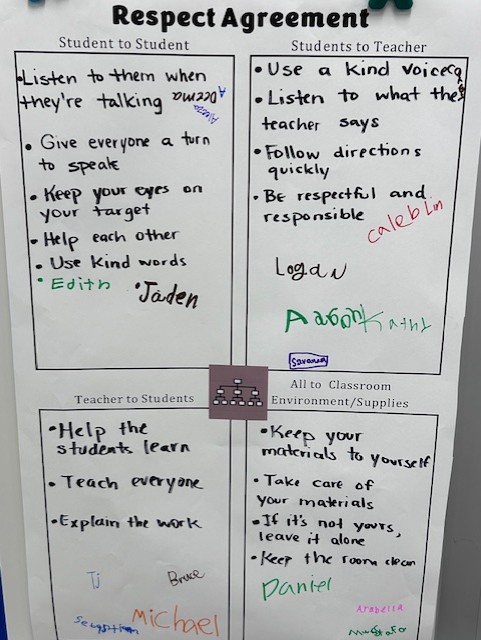 Respect Agreement
Student to Student
•Listen to them when
they're talking
• Give everyone a turn
to speak
• Keep your eyes on
your target
• Help each other
• Use kind words
• Edith
•Jaden
Students to Teacher
• Use a kind voice
• Listen to what the
teacher says
• Follow directions
quickly
• Be respectful and
responsible
caleb Lin
Logan
Savanna
Teacher to Students
•Help the
students learn
• Teach everyone
•Explain the work
Tj
Bruce
Michael
All to Classroom
Environment/Supplies
•Keep your
materials to yourself
• Take care of
your materials
•If it's not yours,
leave it alone
•Keep the room clean
Daniel
Arabella
Mustafa